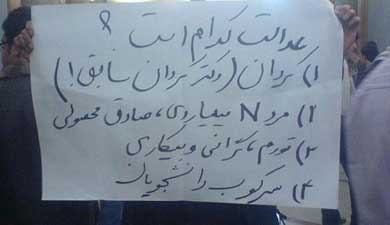 عدالت کدام است ؟
۱) کردان (دکتر کردان سابق !)
۲) مرد N میلیاردی ، صادق محصولی
۳) تورم ، گرانی و بیکاری
۴) سرکوب دانشجویان